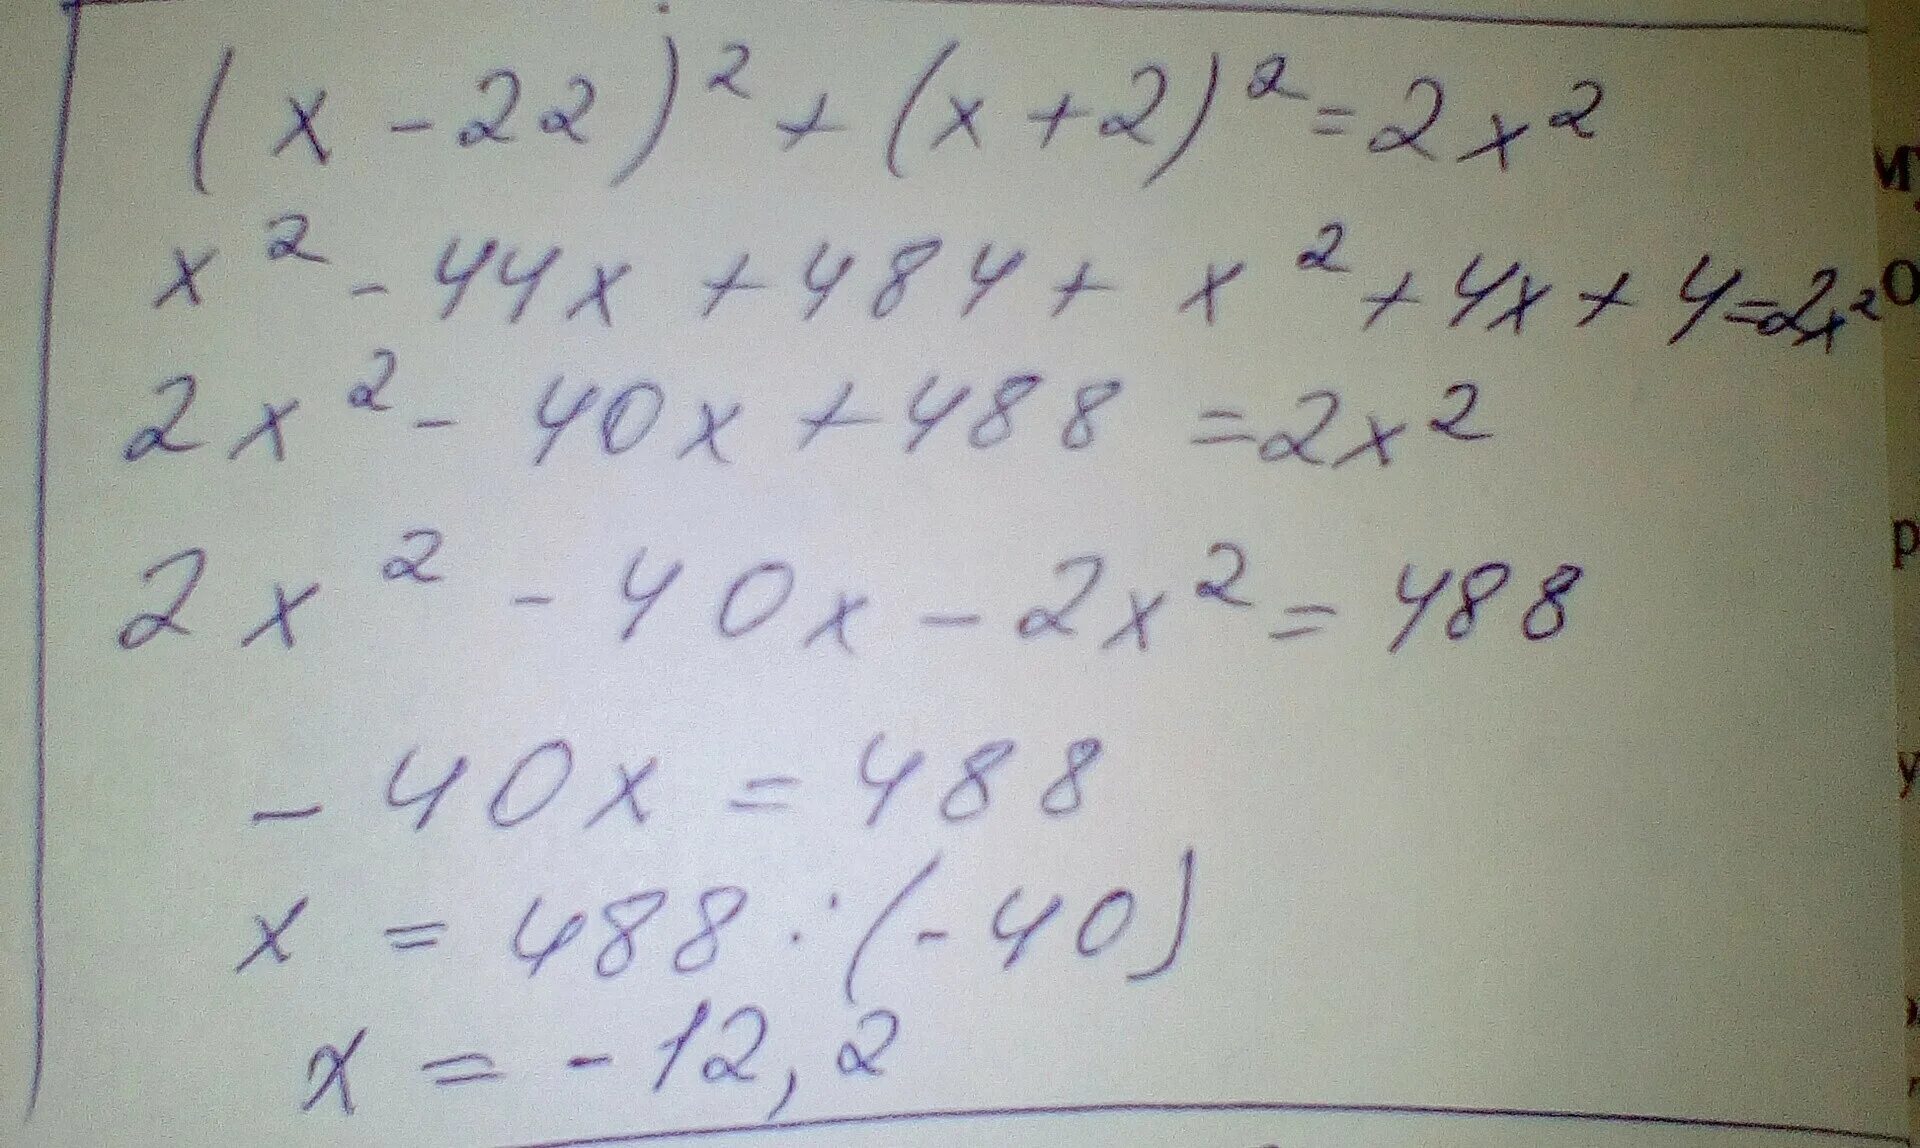 (x - 22)² + (x + 2)² = 2x²
x² - 44x + 484 + x² + 4x + 4 = 2x²
2x² - 40x + 488 = 2x²
2x² - 40x - 2x² = 488
- 40x = 488
x = 488 : (-40)
x = -12,2